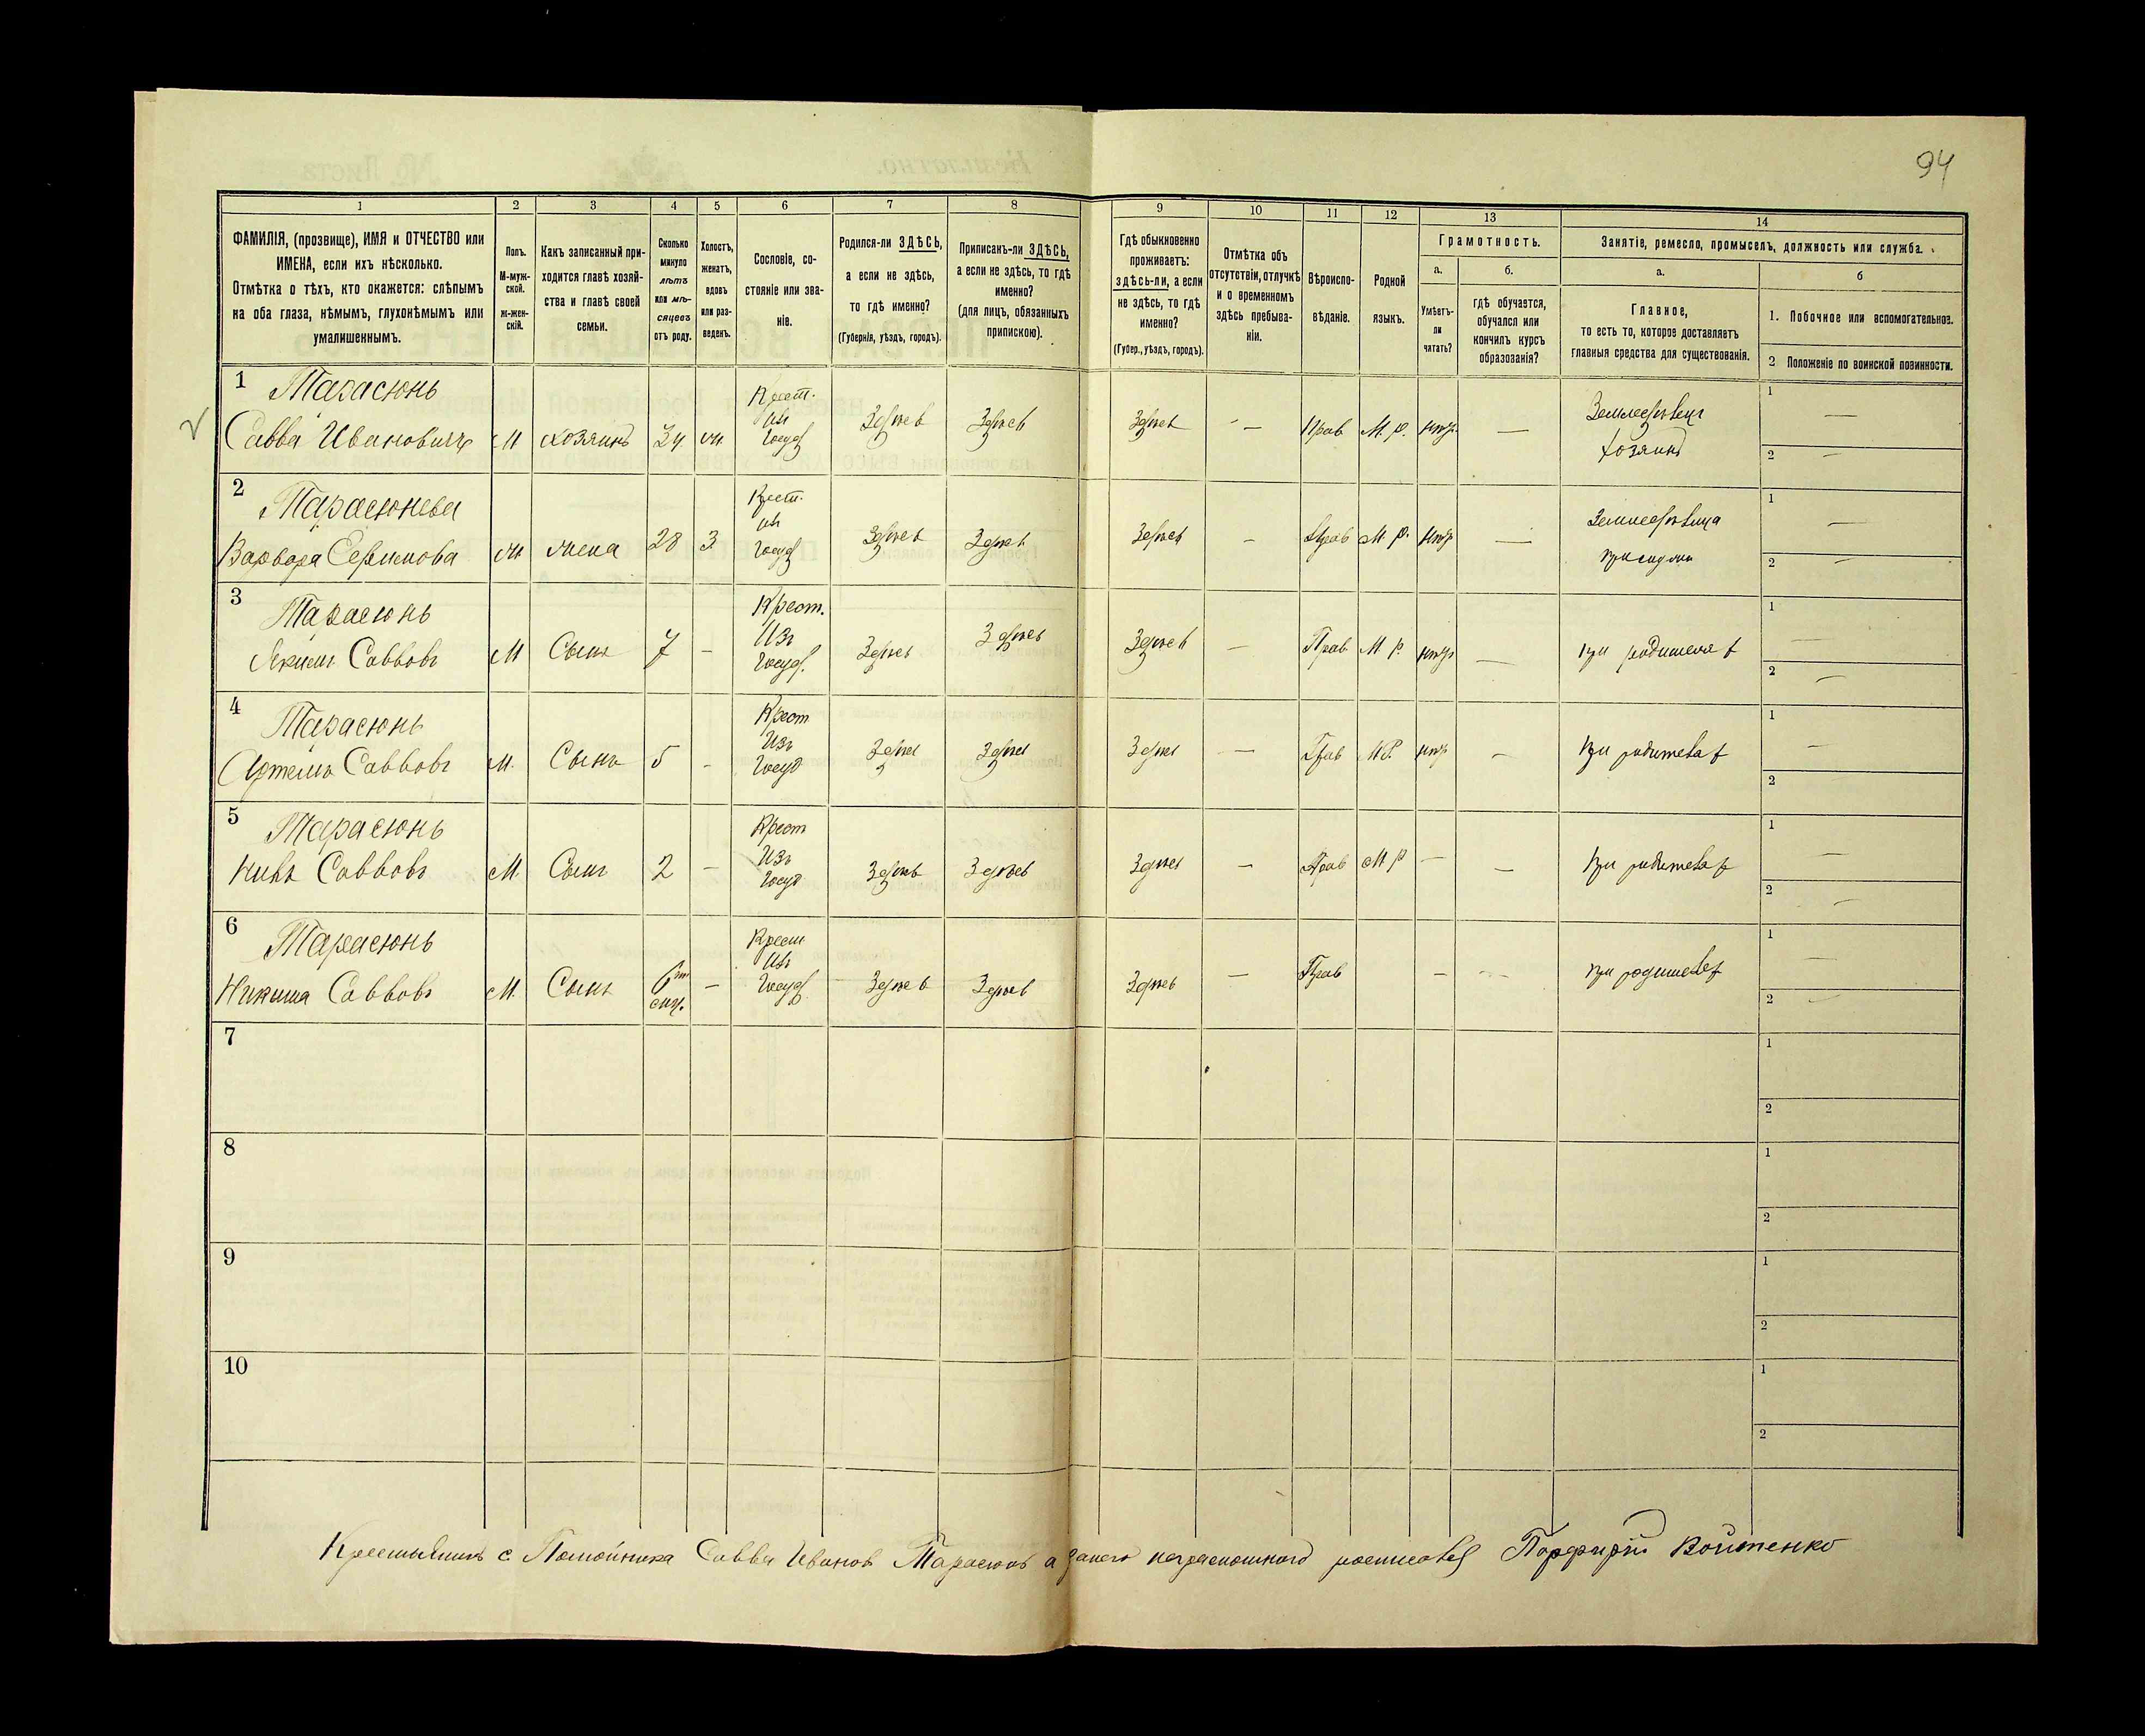 94
1 2 3 4 5 6 7 8 9 10 11 12 13 14
ФАМИЛІЯ, (прозвище), ИМЯ и ОТЧЕСТВО или
ИМЕНА, если ихъ нѣсколько.
Отмѣтка о тѣхъ, кто окажется: слѣпымъ
на оба глаза, нѣмымъ, глухонѣмымъ или
умалишеннымъ.
Полъ.
М-муж-
ской.
ж-жен-
скій.
Какъ записанный при-
ходится главѣ хозяй-
ства и главѣ своей
семьи.
Сколько
минуло
лѣтъ
или мѣ-
сяцевъ
отъ роду.
Холостъ,
женатъ,
вдовъ
или раз-
веденъ.
Сословіе, со-
стояніе или зва-
ніе.
Родился-ли ЗДѢСЬ,
а если не здѣсь,
то гдѣ именно?
(Губернія, уѣздъ, городъ).
Приписанъ-ли ЗДѢСЬ,
а если не здѣсь, то гдѣ
именно?
(для лицъ, обязанныхъ
припискою).
Гдѣ обыкновенно
проживаетъ:
здѣсь-ли, а если
не здѣсь, то гдѣ
именно?
(Губер., уѣздъ, городъ).
Отмѣтка объ
отсутствіи, отлучкѣ
и о временномъ
здѣсь пребыва-
ніи.
Вѣроиспо-
вѣданіе.
Родной
языкъ.
Грамотность.
а.
Умѣетъ-
ли
читать?
б.
гдѣ обучается,
обучался или
кончилъ курсъ
образованія?
Занятіе, ремесло, промыселъ, должность или служба.
а.
Главное,
то есть то, которое доставляетъ
главныя средства для существованія.
б
1. Побочное или вспомогательное.
2 Положеніе по воинской повинности.
1 Тарасюнь Крест. Земледѣлецъ 1 —
Савва Ивановичъ М хозяинъ 34 ж Изъ Госуд Здѣсь Здѣсь Здѣсь — Прав М.Р. нтр. — хозяинъ 2 —
2 Тарасюнева Крест. Земледѣлица 1 —
Варвара Ефимова ж жена 28 З Изъ Госуд Здѣсь Здѣсь Здѣсь — Прав М Р. нтр — 2 —
3 Тарасюнь Крест. 1 —
Якимъ Саввовъ М Сынъ 7 – Изъ Госуд. Здѣсь Здѣсь Здѣсь — Прав М Р. нтр — при родителях 2 —
4 Тарасюнь Крест 1 —
Артемъ Саввовъ М. Сынъ 5 – Изъ Госуд Здѣсь Здѣсь Здѣсь — Прав М Р. нтр — При родителях 2
5 Тарасюнь Крест 1 —
Саввовъ М. Сынъ 2 – Изъ Госуд Здѣсь Здѣсь Здѣсь — Прав М Р — — При родителях 2 —
6 Тарасюнь Крест 1 —
Никита Саввовъ М. Сынъ 6 – Изъ Госуд Здѣсь Здѣсь Здѣсь — Прав — — При родителях 2 —
7 1
2
8 1
2
9 1
2
10 1
2
Крестьянинъ с. Помойника Савва Иванов Тарасюнь а за него неграмотного росписавс Порфирій Войтенко